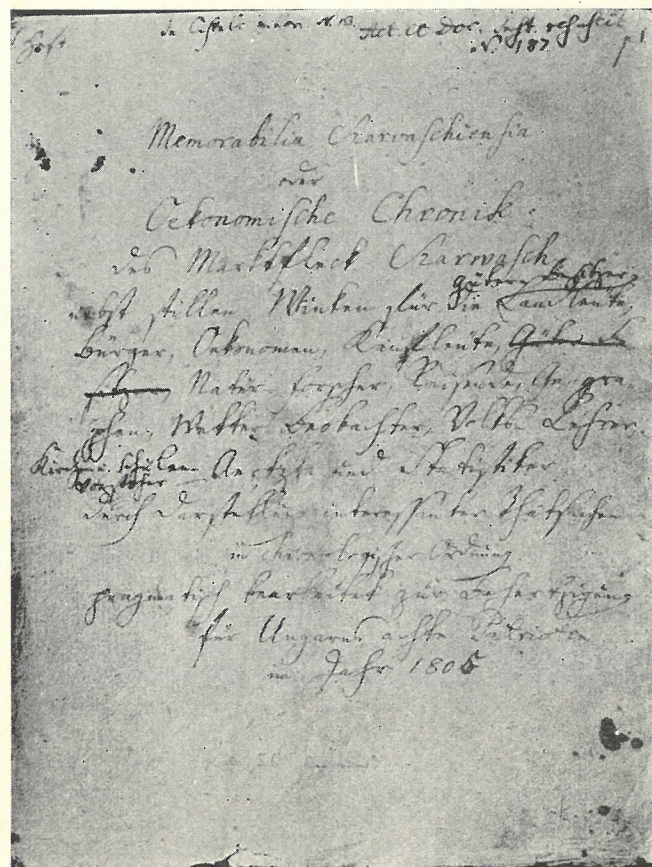 Act. et Doc.
N. 187
Memorabilia Szarvaschiensia
oder
Oekonomische Chronik
des Marktfleck Szarvasch
Güter Besitzer
nebst stillen Winken für die Landleute,
Bürger, Oekonomen, Kaufleute, Güter Be
sitzer, Natur-forscher, Reisende, Geogra-
phen, Wetter Beobachter, Volks Lehrer
Kirchen u. Schulen
Vorsteher Aerzte und Statistiker
durch Darstellung interessanter Thatsachen
in chronologischer Ordnung
pragmatisch bearbeitet zur Beherzigung
für Ungarns ächte Patrioten
im Jahr 1805